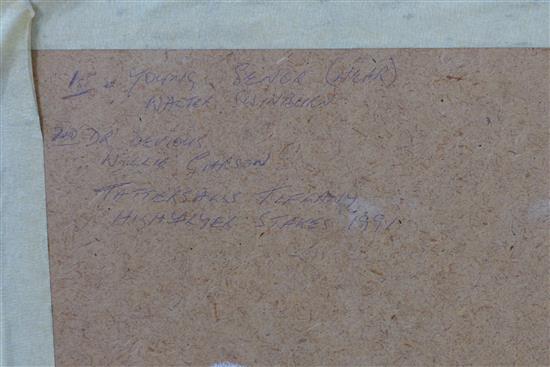 1st YOUNG SENOR (NEAR)
WALTER SWINBURN
2ND DR DEVIOUS
WILLIE CARSON
TATTERSALLS TIFFANY
HIGHFLYER STAKES 1991